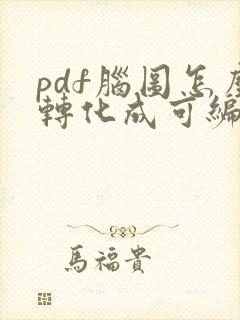 pdf腦圖怎
轉化成可編
馬福貴